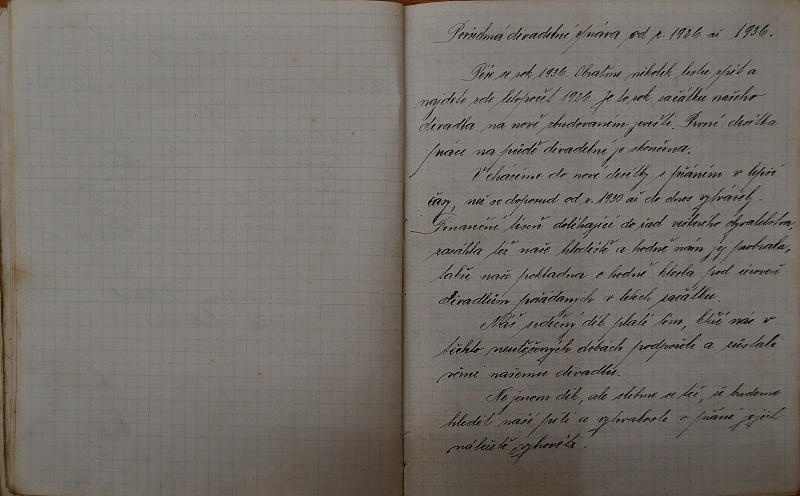 Pořadná divadelní zpráva od r. 1926 až 1936.
Píše se rok 1936. Obraťme několik listů zpět a
najdete zde letopočet 1926. Je to rok začátku našeho
divadla na nově zbudovaném jevišti. První desítka
práce na půdě divadelní je skončena.
Vcházíme do nové desítky s přáním v lepší
časy, než se doposud od r. 1930 až do dnes vytvářely.
Finanční tíseň doléhající do řad veškerého obyvatelstva,
zasáhla též naše hlediště a hodně nám jej probrala,
takže naše pokladna o hodně klesla pod úroveň
divadlům pořádaných v letech začátku.
Náš srdečný dík platí těm, kteří nás v
těchto neutěšených dobách podpořili a zůstali
věrni našemu divadlu.
Ne jenom dík, ale slibme si též, že budeme
hleděti naší pílí a vytrvalostí v přání jejich
náležitě vyhověti.